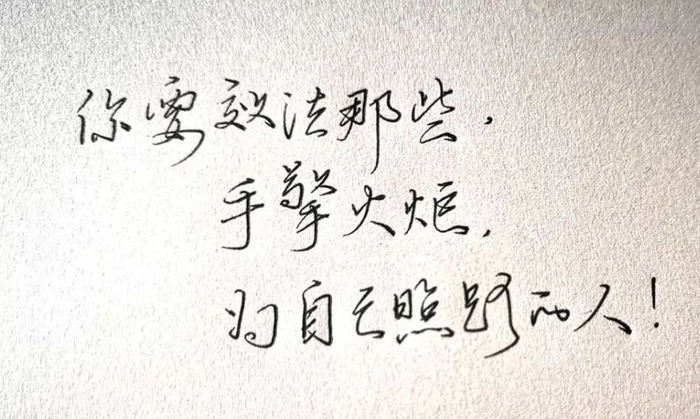 你要效法那些，
手擎火炬，
为自己照路的人！